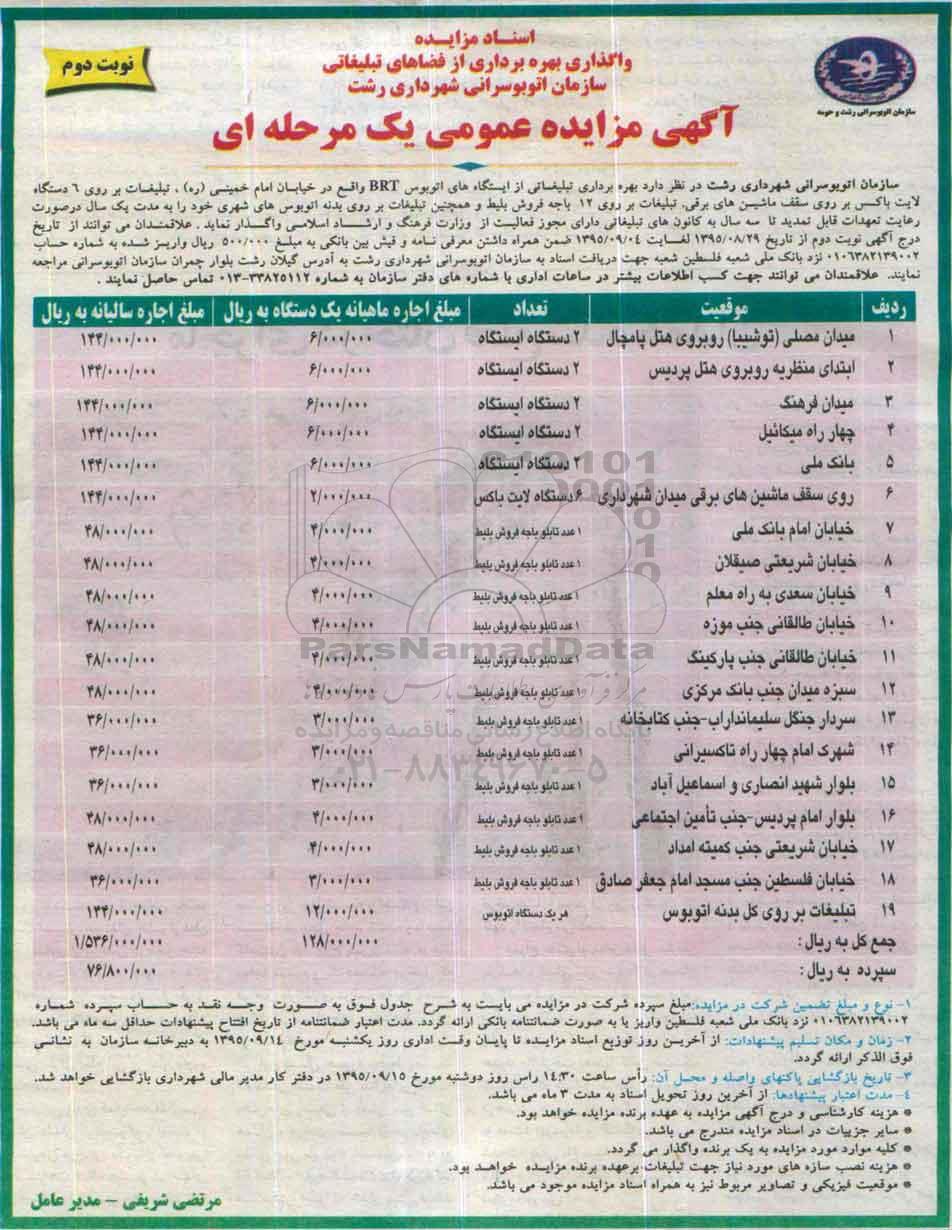 اسناد مزایده
واگذاری بهره برداری از فضاهای تبلیغاتی
سازمان اتوبوسرانی شهرداری رشت
نوبت دوم
سازمان اتوبوسرانی رشت و حومه
آگهی مزایده عمومی یک مرحله ای
سازمان اتوبوسرانی شهرداری رشت در نظر دارد بهره برداری تبلیغاتی از ایستگاه های اتوبوس BRT واقع در خیابان امام خمینی (ره) ، تبلیغات بر روی ٦ دستگاه
لایت باکس بر روی سقف ماشین های برقی، تبلیغات بر روی ١٢ باجه فروش بلیط و همچنین تبلیغات بر روی بدنه اتوبوس های شهری خود را به مدت یک سال درصورت
رعایت تعهدات قابل تمدید تا سه سال به کانون های تبلیغاتی دارای مجوز فعالیت از وزارت فرهنگ و ارشاد اسلامی واگذار نماید . علاقمندان می توانند از تاریخ
درج آگهی نوبت دوم از تاریخ ١٣٩٥/٠٨/٢٩ لغایت ١٣٩٥/٠٩/٠٤ ضمن همراه داشتن معرفی نامه و فیش بین بانکی به مبلغ ٥٠٠/٠٠٠ ریال واریز شده به شماره حساب
٠١٠٦٣٨٢١٣٩٠٠٢ نزد بانک ملی شعبه فلسطین شعبه جهت دریافت اسناد به سازمان اتوبوسرانی شهرداری رشت به آدرس گیلان رشت بلوار چمران سازمان اتوبوسرانی مراجعه
نمایند. علاقمندان می توانند جهت کسب اطلاعات بیشتر در ساعات اداری با شماره های دفتر سازمان به شماره ٣٣٨٢٥١١٢-٠١٣ تماس حاصل نمایند .
ردیف موقعیت تعداد مبلغ اجاره ماهیانه یک دستگاه به ریال مبلغ اجاره سالیانه به ریال
۱ میدان مصلی (توشیبا) روبروی هتل پامچال ۲ دستگاه ایستگاه ۶/۰۰۰/۰۰۰ ۱۴۴/۰۰۰/۰۰۰
۲ ابتدای منظریه روبروی هتل پردیس ۲ دستگاه ایستگاه ۶/۰۰۰/۰۰۰ ۱۴۴/۰۰۰/۰۰۰
۳ میدان فرهنگ ۲ دستگاه ایستگاه ۶/۰۰۰/۰۰۰ ۱۴۴/۰۰۰/۰۰۰
۴ چهار راه میکائیل ۲ دستگاه ایستگاه ۶/۰۰۰/۰۰۰ ۱۴۴/۰۰۰/۰۰۰
۵ بانک ملی ۲ دستگاه ایستگاه ۶/۰۰۰/۰۰۰ ۱۴۴/۰۰۰/۰۰۰
۶ روی سقف ماشین های برقی میدان شهرداری ۶ دستگاه لایت باکس ۲/۰۰۰/۰۰۰ ۱۴۴/۰۰۰/۰۰۰
۷ خیابان امام بانک ملی ۱ عدد تابلو باجه فروش بلیط ۴/۰۰۰/۰۰۰ ۴۸/۰۰۰/۰۰۰
۸ خیابان شریعتی صیقلان ۱ عدد تابلو باجه فروش بلیط ۴/۰۰۰/۰۰۰ ۴۸/۰۰۰/۰۰۰
۹ خیابان سعدی به راه معلم ۱ عدد تابلو باجه فروش بلیط ۴/۰۰۰/۰۰۰ ۴۸/۰۰۰/۰۰۰
۱۰ خیابان طالقانی جنب موزه ۱ عدد تابلو باجه فروش بلیط ۴/۰۰۰/۰۰۰ ۴۸/۰۰۰/۰۰۰
۱۱ خیابان طالقانی جنب پارکینگ ۱ عدد تابلو باجه فروش بلیط ۴/۰۰۰/۰۰۰ ۴۸/۰۰۰/۰۰۰
۱۲ سبزه میدان جنب بانک مرکزی ۱ عدد تابلو باجه فروش بلیط ۴/۰۰۰/۰۰۰ ۴۸/۰۰۰/۰۰۰
۱۳ سردار جنگل سلیمانداراب-جنب کتابخانه ۱ عدد تابلو باجه فروش بلیط ۳/۰۰۰/۰۰۰ ۳۶/۰۰۰/۰۰۰
۱۴ شهرک امام چهار راه تاکسیرانی ۱ عدد تابلو باجه فروش بلیط ۳/۰۰۰/۰۰۰ ۳۶/۰۰۰/۰۰۰
۱۵ بلوار شهید انصاری و اسماعیل آباد ۱ عدد تابلو باجه فروش بلیط ۳/۰۰۰/۰۰۰ ۳۶/۰۰۰/۰۰۰
۱۶ بلوار امام پردیس-جنب تأمین اجتماعی ۱ عدد تابلو باجه فروش بلیط ۴/۰۰۰/۰۰۰ ۴۸/۰۰۰/۰۰۰
۱۷ خیابان شریعتی جنب کمیته امداد ۱ عدد تابلو باجه فروش بلیط ۴/۰۰۰/۰۰۰ ۴۸/۰۰۰/۰۰۰
۱۸ خیابان فلسطین جنب مسجد امام جعفر صادق ۱ عدد تابلو باجه فروش بلیط ۳/۰۰۰/۰۰۰ ۳۶/۰۰۰/۰۰۰
۱۹ تبلیغات بر روی کل بدنه اتوبوس هر یک دستگاه اتوبوس ۱۲/۰۰۰/۰۰۰ ۱۴۴/۰۰۰/۰۰۰
جمع کل به ریال : ۱۲۸/۰۰۰/۰۰۰ ۱/۵۳۶/۰۰۰/۰۰۰
سپرده به ریال : ۷۶/۸۰۰/۰۰۰
ParsNamadData
پایگاه اطلاع رسانی مناقصه و مزایده
۰۲۱-۸۸۳۴۹۶۷۰-۵
۱- نوع و مبلغ تضمین شرکت در مزایده:مبلغ سپرده شرکت در مزایده می بایست به شرح جدول فوق به صورت وجه نقد به حساب سپرده شماره
٠١٠٦٣٨٢١٣٩٠٠٢ نزد بانک ملی شعبه فلسطین واریز یا به صورت ضمانتنامه بانکی ارائه گردد. مدت اعتبار ضمانتنامه از تاریخ افتتاح پیشنهادات حداقل سه ماه می باشد.
۲- زمان و مکان تسلیم پیشنهادات: از آخرین روز توزیع اسناد مزایده تا پایان وقت اداری روز یکشنبه مورخ ١٣٩٥/٠٩/١٤ به دبیرخانه سازمان به نشانی
فوق الذکر ارائه گردد.
۳- تاریخ بازگشایی پاکتهای واصله و محل آن: رأس ساعت ١٤:٣٠ راس روز دوشنبه مورخ ١٣٩٥/٠٩/١٥ در دفتر کار مدیر مالی شهرداری بازگشایی خواهد شد.
٤- مدت اعتبار پیشنهادها: از آخرین روز تحویل اسناد به مدت ٣ ماه می باشد.
* هزینه کارشناسی و درج آگهی مزایده به عهده برنده مزایده خواهد بود.
* سایر جزییات در اسناد مزایده مندرج می باشد.
* کلیه موارد مورد مزایده به یک برنده واگذار می گردد.
* هزینه نصب سازه های مورد نیاز جهت تبلیغات برعهده برنده مزایده خواهد بود.
* موقعیت فیزیکی و تصاویر مربوط نیز به همراه اسناد مزایده موجود می باشد.
مرتضی شریفی - مدیر عامل